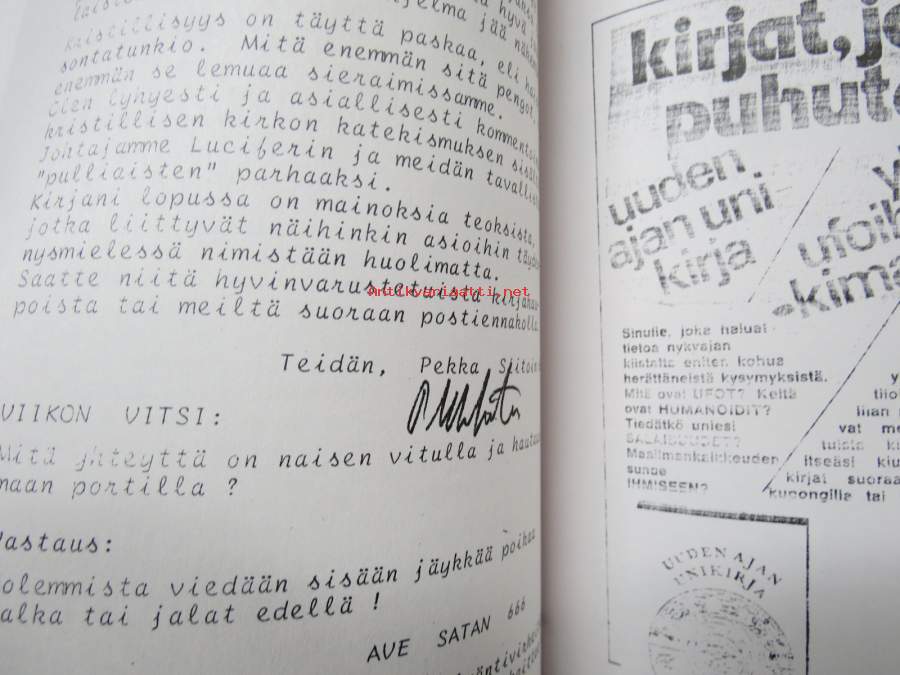 hyvä
jää
kristillisyys on täyttä paskaa, eli
sontatunkio. Mitä enemmän sitä pengot,
enemmän se lemuaa sieraimissamme.
Olen lyhyesti ja asiallisesti
kristillisen kirkon katekismuksen
Johtajamme Luciferin ja meidän
"pulliaisten" parhaaksi.
Kirjani lopussa on mainoksia teoksista,
jotka liittyvät näihinkin asioihin
nysmielessä nimistään huolimatta.
Saatte niitä hyvinvarustetuista
poista tai meiltä suoraan postiennakolla
antikvariaatti.net
Teidän, Pekka
VIIKON VITSI:
Mitä yhteyttä on naisen vitulla ja
maan portilla ?
Vastaus:
molemmista viedään sisään jäykkää poikaa
jalka tai jalat edellä !
AVE SATAN 666
kirjat,
puhut
uuden
ajan uni-
kirja
Sinulle, joka haluat
tietoa nykyajan
kiistalla eniten kohua
herättäneistä kysymyksistä.
Mitä ovat UFOT? Keitä
ovat HUMANOIDIT?
Tiedätkö uniesi
SALAISUUDET?
Maailmankaikkeuden
suhde
IHMISEEN?
vat
itseäsi
kirjat
kupongilla tai
UUDEN AJAN
UNIKIRJA